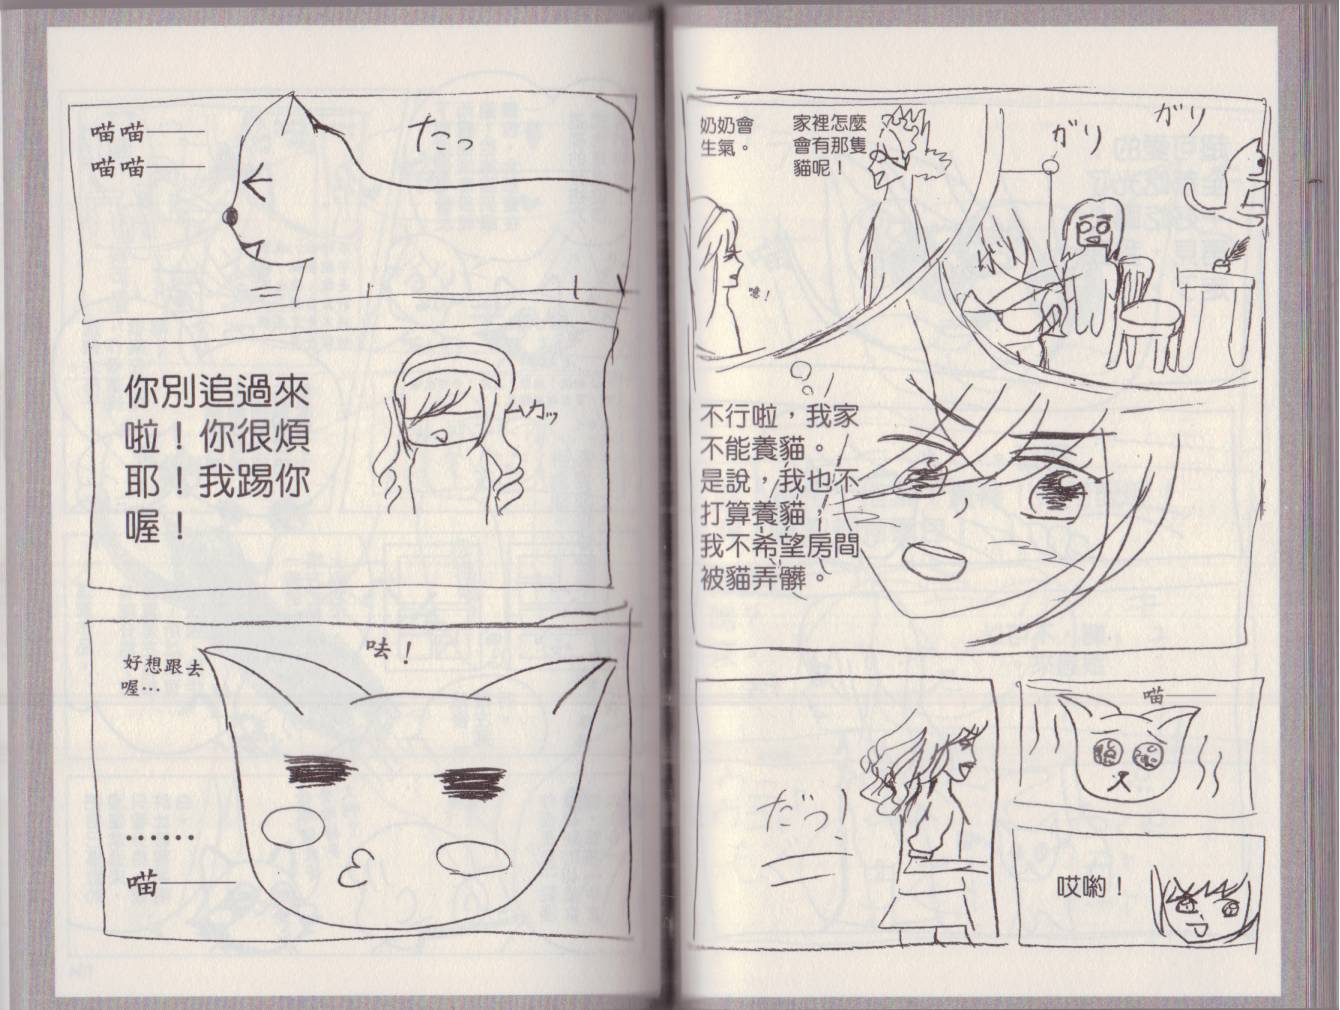 ガリ
ガリ
ガリ
家裡怎麼
會有那隻
貓呢！
奶奶會
生氣。
噫！
不行啦，我家
不能養貓。
是說，我也不
打算養貓！
我不希望房間
被貓弄髒。
喵——
哎喲！
だっ！
たっ
喵喵——
喵喵——
你別追過來
啦！你很煩
耶！我踢你
喔！
ムカッ
呿！
好想跟去
喔…
……
喵——